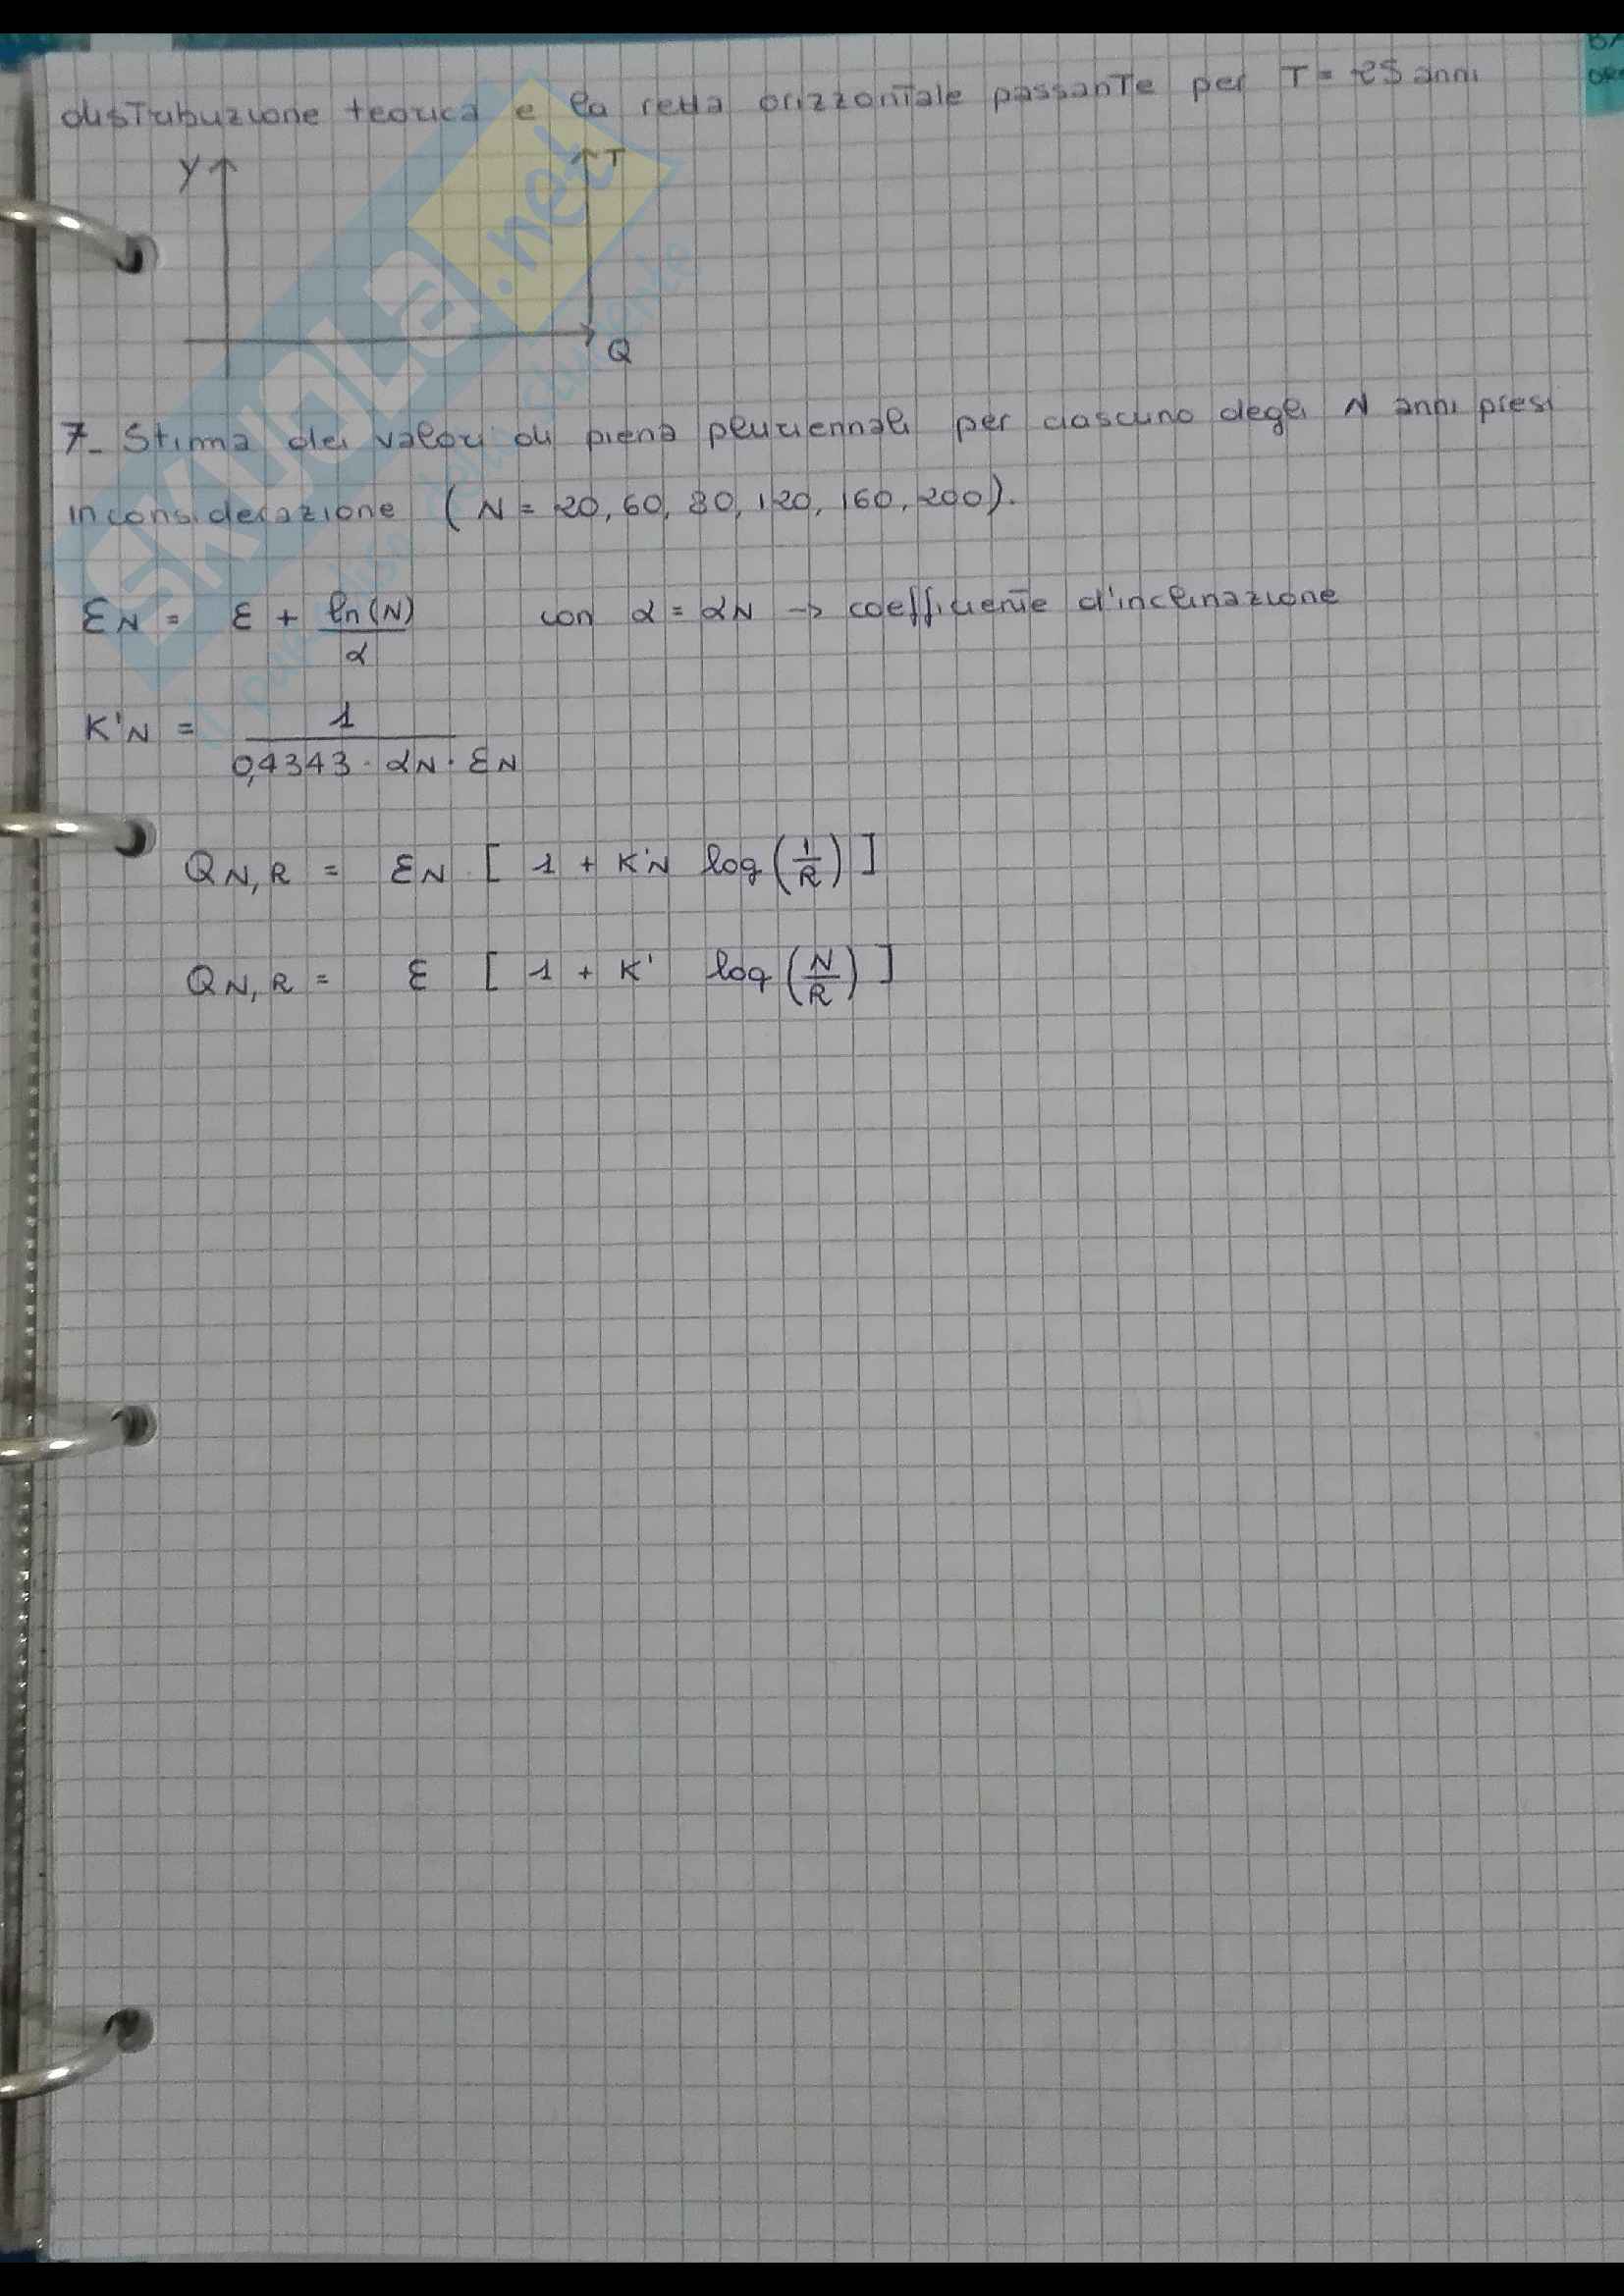 distribuzione teorica e la retta orizzontale passante per T = 25 anni
Y
T
Q
7- Stima dei valori di piena pluriennali per ciascuno degli N anni presi
in considerazione (N = 20, 60, 80, 120, 160, 200).
εN = ε + ln(N)/α con α = αN → coefficiente d'inclinazione
K'N = 1/(0,4343 · αN · εN)
QN,R = εN [1 + K'N log(1/R)]
QN,R = ε [1 + K' log(N/R)]
SKUOLA.net